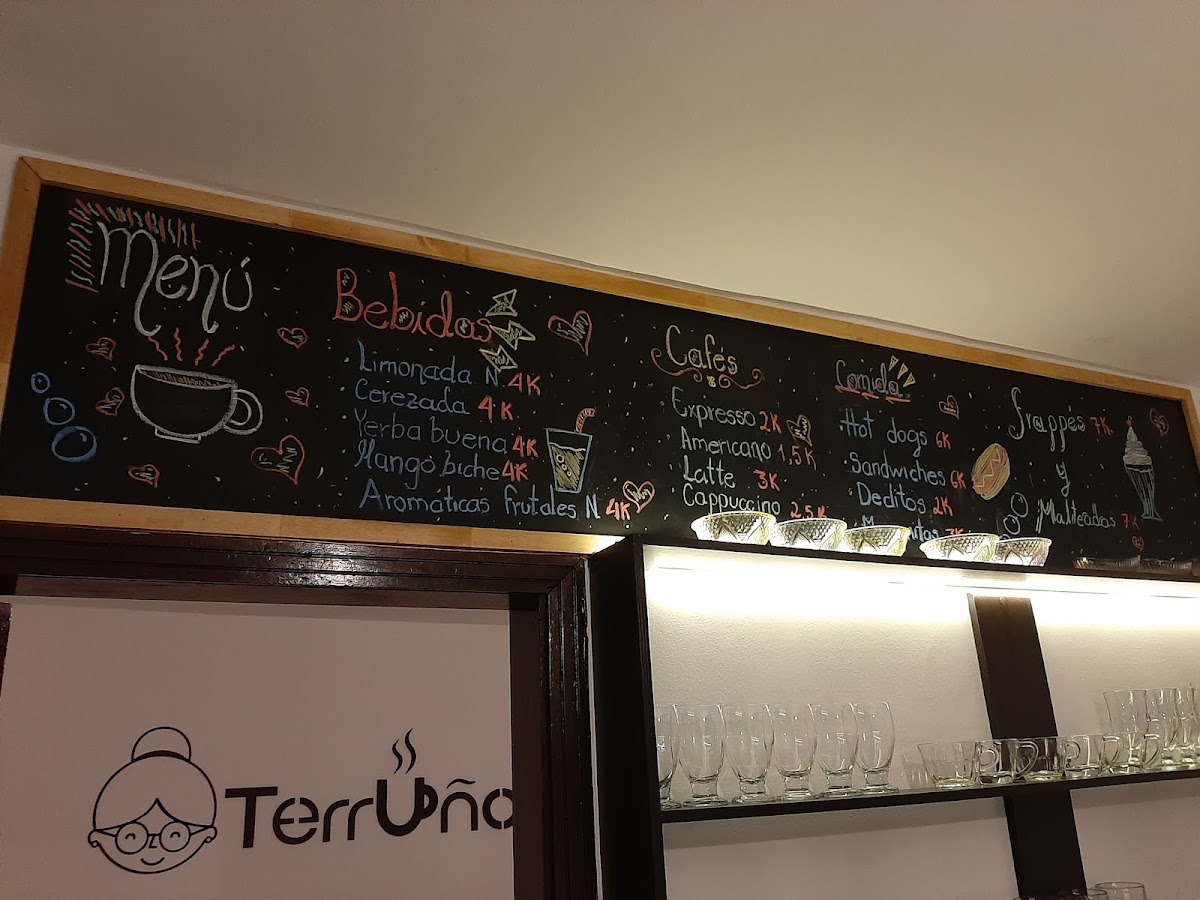 Menú
Bebidas
Limonada N 4K
Cerezada 4K
Yerba buena 4K
Mango biche 4K
Aromáticas frutales N 4K
Cafés
Expresso 2K
Americano 1,5K
Latte 3K
Cappuccino 2,5K
Comida
Hot dogs 6K
Sandwiches 6K
Deditos 2K
frappés 7K
y
Malteadas 7K
Terruño